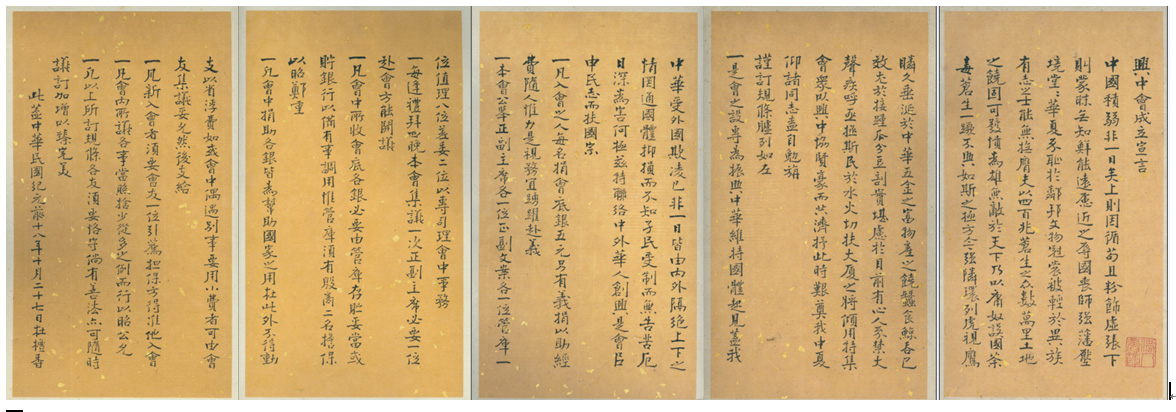 興中會成立宣言
中國積弱非一日矣上則因循苟且粉飾虛張下
則蒙昧無知鮮能遠慮近之辱國喪師強藩壓
境堂堂華夏不恥於鄰邦文物冠裳被輕於異族
有志之士能無撫膺夫以四百兆蒼生之眾數萬里土地
之饒固可發憤為雄無敵於天下乃以庸奴誤國荼
毒蒼生一蹶不興如斯之極方今強鄰環列虎視鷹
瞵久垂涎於中華五金之富物產之饒蠶食鯨吞已
效尤於接踵瓜分豆剖實堪慮於目前有心人不禁大
聲疾呼亟拯斯民於水火切扶大廈之將傾用特集
會眾以興中協賢豪而共濟抒此時艱奠我中夏
仰諸同志盍自勉旃
謹訂規條臚列如左
一是會之設專為振興中華維持國體起見蓋我
中華受外國欺凌已非一日皆由內外隔絕上下之
情罔通國體抑損而不知子民受制而無告苦厄
日深為害何極茲特聯絡中外華人創興是會以
申民志而扶國宗
一凡入會之人每名捐會底銀五元另有義捐以助經
費隨人惟力是視務宜踴躍赴義
一本會公舉正副主席各一位正副文案各一位管庫一
位值理八位 二位以專司理會中事務
一每逢禮拜四晚本會集議一次正副主席必要一位
赴會方能開議
一凡會中所收會底各銀必要由管庫存貯妥當或
貯銀行以備有事調用惟管庫須有殷商二名擔保
以昭鄭重
一凡會中捐助各銀皆為幫助國家之用在此外不得動
支以省浮費如或會中偶遇別事要用小費者可由會
友集議妥允然後支給
一凡新入會者須要會友一位引薦擔保方得准他入會
一凡會內所議各事當照捨少從多之例而行以昭公允
一凡以上所訂規條各友須要恪守倘有善法亦可隨時
議訂加增以臻完美
此蓋中華民國紀元前十八年十月二十七日在檀香